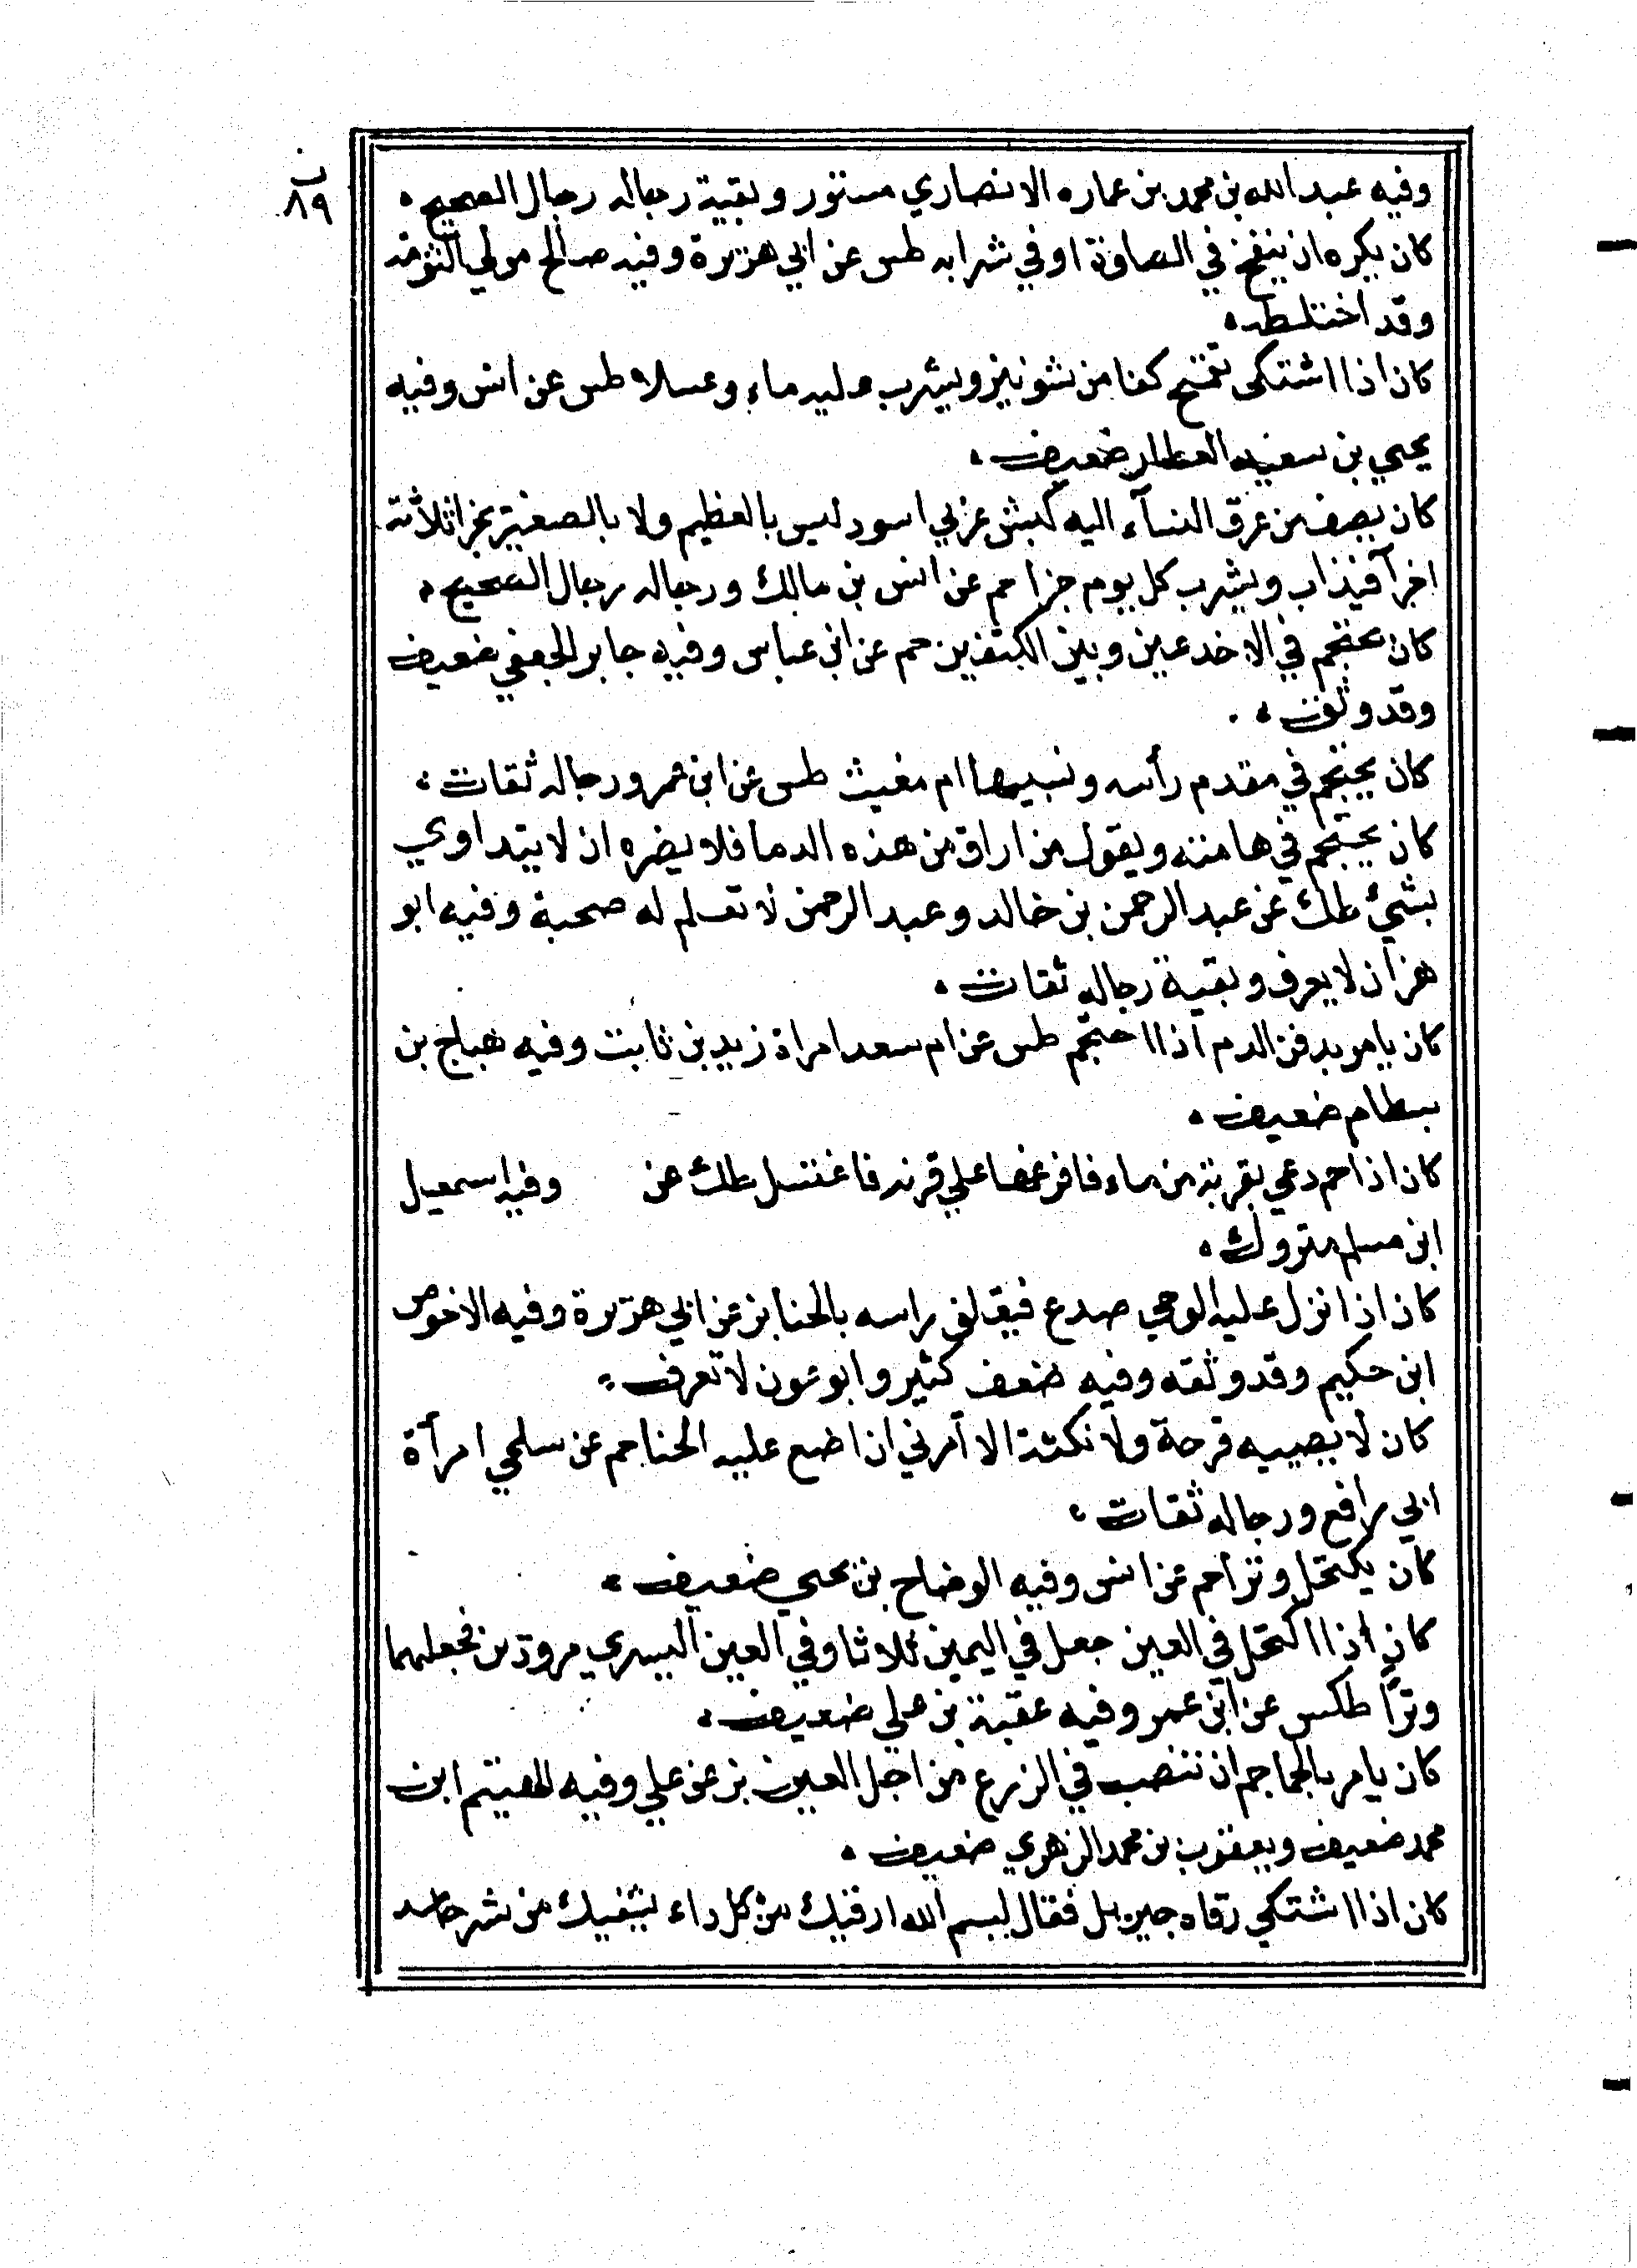 ب
٨٩
وفيه عبد الله بن محمد بن عماره الانصاري مستور وبقية رجاله رجال الصحيح
كان يكره ان ينفخ في الصلوة او في شرابه طس عن ابي هريرة وفيه صالح مولي التؤمة
وقد اختلط
كان اذا اشتكى تقمح كفا من شونيز ويشرب عليه ماء وعسلا طس عن انس وفيه
يحيي بن سعيد العطار ضعيف
كان يصف من عرق النسآء الية كبش عربي اسود ليس بالعظيم ولا بالصغير يجزا ثلاثة
اجزآ فيذاب ويشرب كل يوم جزا حم عن انس بن مالك ورجاله رجال الصحيح
كان يحتجم في الاخدعين وبين الكتفين حم عن ابن عباس وفيه جابر الجعفي ضعيف
وقد وثق
كان يحتجم في مقدم رأسه ويسميها ام مغيث طس عن ابن عمر ورجاله ثقات
كان يحتجم في هامته ويقول من اراق من هذه الدما فلا يضره ان لا يتداوي
بشيئ طك عن عبد الرحمن بن خالد وعبد الرحمن لا تعلم له صحبة وفيه ابو
هزان لا يعرف وبقية رجاله ثقات
كان يامر بدفن الدم اذا احتجم طس عن ام سعد امراة زيد بن ثابت وفيه هياج بن
بسطام ضعيف
كان اذا حم دعي بقربة من ماء فافرغها علي قرنه فاغتسل طك عن وفيه اسمعيل
ابن مسلم متروك
كان اذا نزل عليه الوحي صدع فيغلف راسه بالحنا بز عن ابي هريرة وفيه الاخوص
ابن حكيم وقد وثقه وفيه ضعف كثير وابو عون لا تعرف
كان لا يصيبه قرحة ولا نكثة الا آمرني ان اضع عليه الحنا حم عن سلمي امرآة
ابي رافع ورجاله ثقات
كان يكتحل وترا حم عن انس وفيه الوضاح بن يحيي ضعيف
كان اذا اكتحل في العين جعل في اليمين ثلاثا وفي العين اليسري مرودين فجعلهما
وترًا طكس عن ابن عمر وفيه عقبة بن علي ضعيف
كان يامر بالجماجم ان تنصب في الزرع من اجل العين بز عن علي وفيه الهيثم ابن
محمد ضعيف ويعقوب بن محمد الزهري ضعيف
كان اذا اشتكي رقاه جبريل فقال بسم الله ارقيك من كل داء يشفيك من شر حاسد